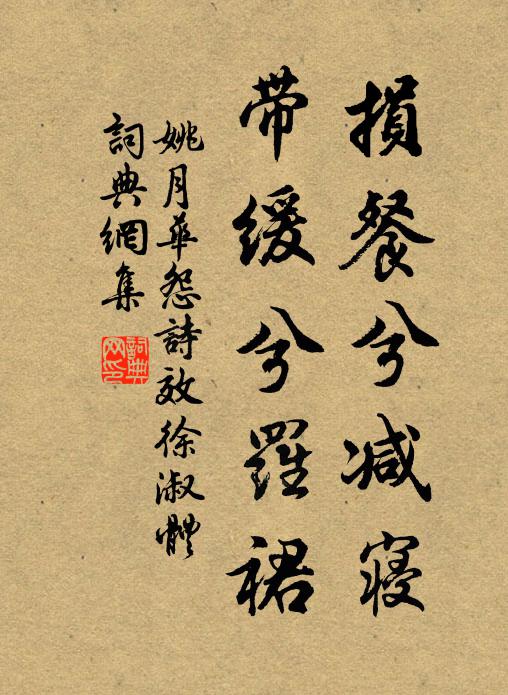 損餐兮减寝
带緩兮羅裙
姚月華怨詩效徐淑體
詞典網集
詞典
网印